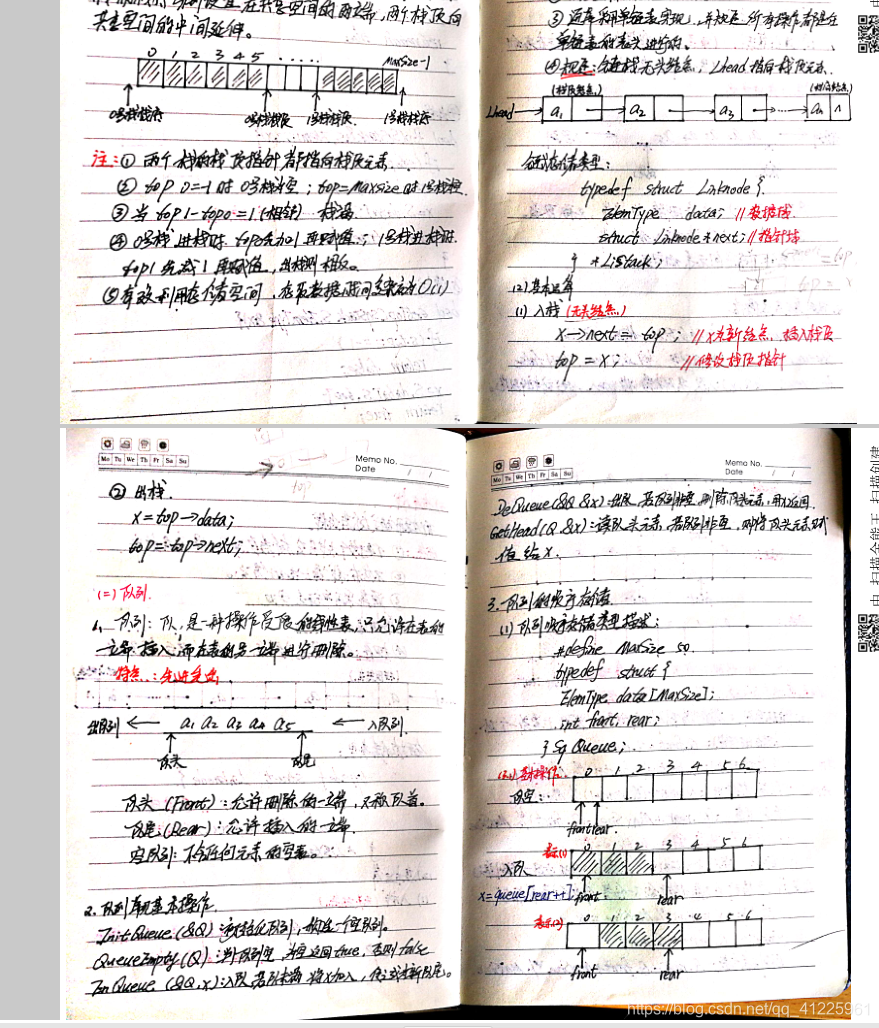 共享空间的中间延伸。
0 1 2 3 4 5 ...... MaxSize-1
0号栈栈底 0号栈栈顶 1号栈栈顶 1号栈栈底
注:① 两个栈的栈顶指针都指向栈顶元素
② top 0=-1时 0号栈为空;top=Maxsize时1号栈空
③ 当 top1-top0=1(相邻) 栈满
④ 0号栈进栈时 top0先加1再赋值;1号栈进栈时
top1先减1再赋值,出栈则相反。
⑤ 有效利用存储空间,存取数据时间复杂度为O(1)
③ 通常采用单链表实现,并规定所有操作都是在
单链表的表头进行的。
④ 规定:链栈无头结点,Lhead指向栈顶元素.
(栈顶结点) (栈底结点)
Lhead a1 a2 a3 ... an ∧
链式存储类型:
typedef struct Linknode {
ElemType data; //数据域
struct Linknode *next; //指针域
} *LiStack;
(2)基本运算
(1) 入栈 (无头结点)
x->next = top ; //x为新结点,插入栈顶
top = x; //修改栈顶指针
Mo Tu We Th Fr Sa Su
Memo No.
Date / /
② 出栈.
x=top->data;
top = top->next;
(二) 队列.
1、队列:队,是一种操作受限的线性表,只允许在表的
一端插入,而在表的另一端进行删除。
特点:先进先出
出队列 a1 a2 a3 a4 a5 入队列
队头 队尾
队头(Front):允许删除的一端,又称队首。
队尾(Rear):允许插入的一端.
空队列:不含任何元素的空表。
2. 队列常见基本操作.
InitQueue (&Q):初始化队列,构造一个空队列.
QueueEmpty(Q):判队列空,为空返回true,否则false
EnQueue (&Q,x):入队,若队未满,将x加入,使之成为新队尾。
Mo Tu We Th Fr Sa Su
Memo No.
Date / /
DeQueue(&Q &x):出队,若队列非空,删除队头元素,用x返回.
GetHead(Q &x):读队头元素,若队列非空,则将队头元素赋
值给x.
3. 队列的顺序存储
(1) 队列顺序存储类型描述:
#define MaxSize 50
typedef struct {
ElemType data[MaxSize];
int front, rear;
} SqQueue;
(2)基本操作.
0 1 2 3 4 5 6
队空:
front rear.
表示(1) 0 1 2 3 4 5 6
入队
x=queue[rear++] front rear
表示(2) 0 1 2 3 4 5 6
front rear
扫描全能王 扫描创建
https://blog.csdn.net/qq_41225961